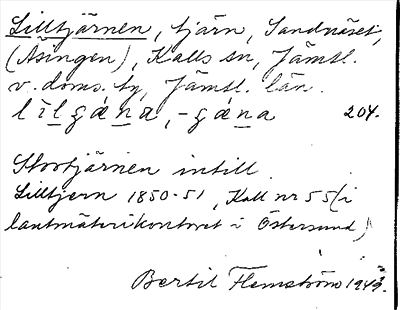 Lilltjärnen, tjärn, Sandnäset,
(Åsingen), Kalls sn, Jämtl.
v. doms. ty, Jämtl. län.
lìlgæna, -gǽna 204.
Stortjärnen intill.
Lilltjern 1850-51, Kall nr 55 (i
lantmäterikontoret i Östersund)
Bertil Flemström 1943.